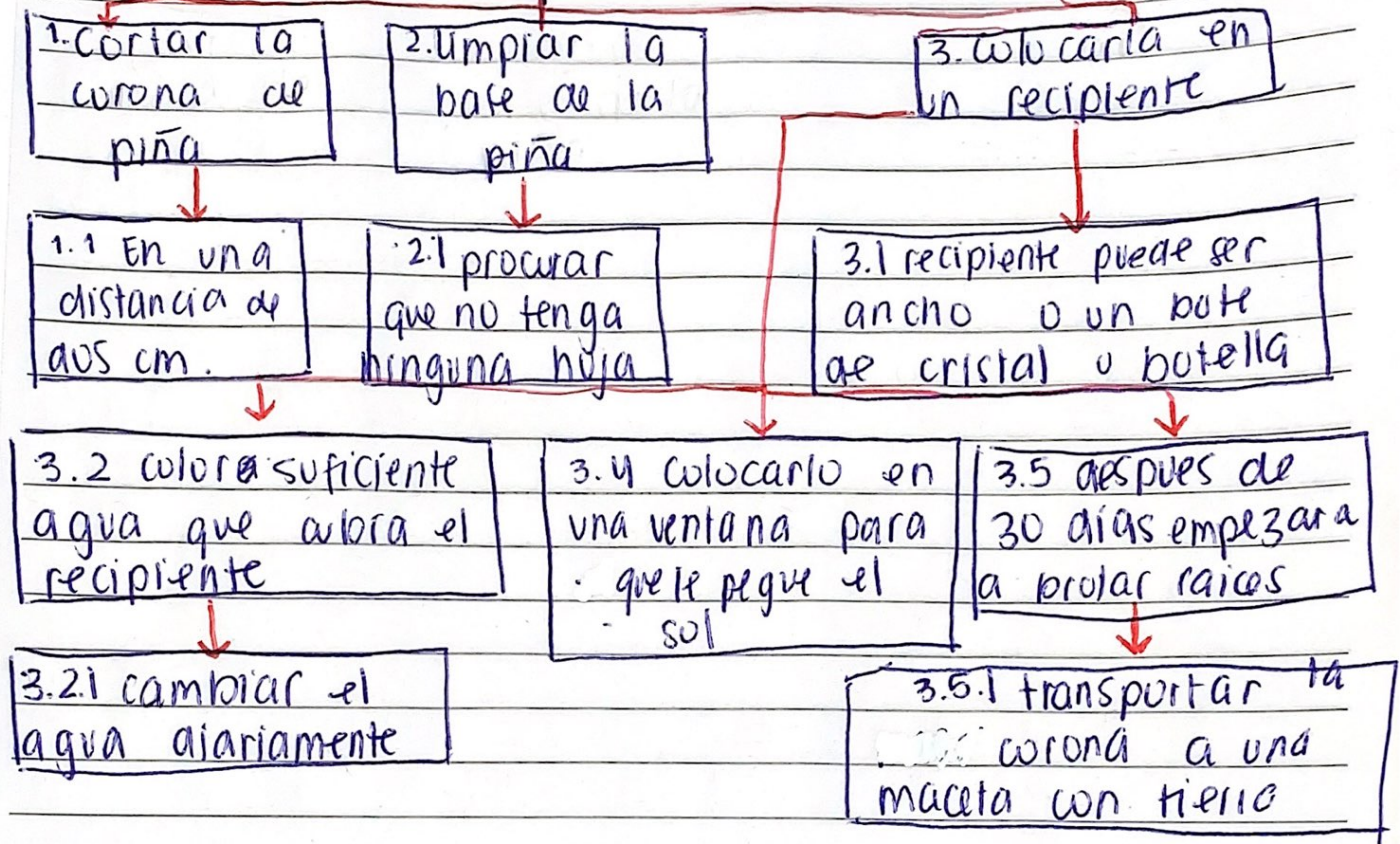 1. Cortar la
corona de
piña
2. Limpiar la
base de la
piña
3. Colocarla en
un recipiente
1.1 En una
distancia de
dos cm.
2.1 procurar
que no tenga
ninguna hoja
3.1 recipiente puede ser
ancho o un bote
de cristal o botella
3.2 colora suficiente
agua que cubra el
recipiente
3.4 colocarlo en
una ventana para
que le pegue el
sol
3.5 despues de
30 días empezara
a brotar raices
3.2.1 cambiar el
agua diariamente
3.5.1 transportar la
corona a una
maceta con tierra